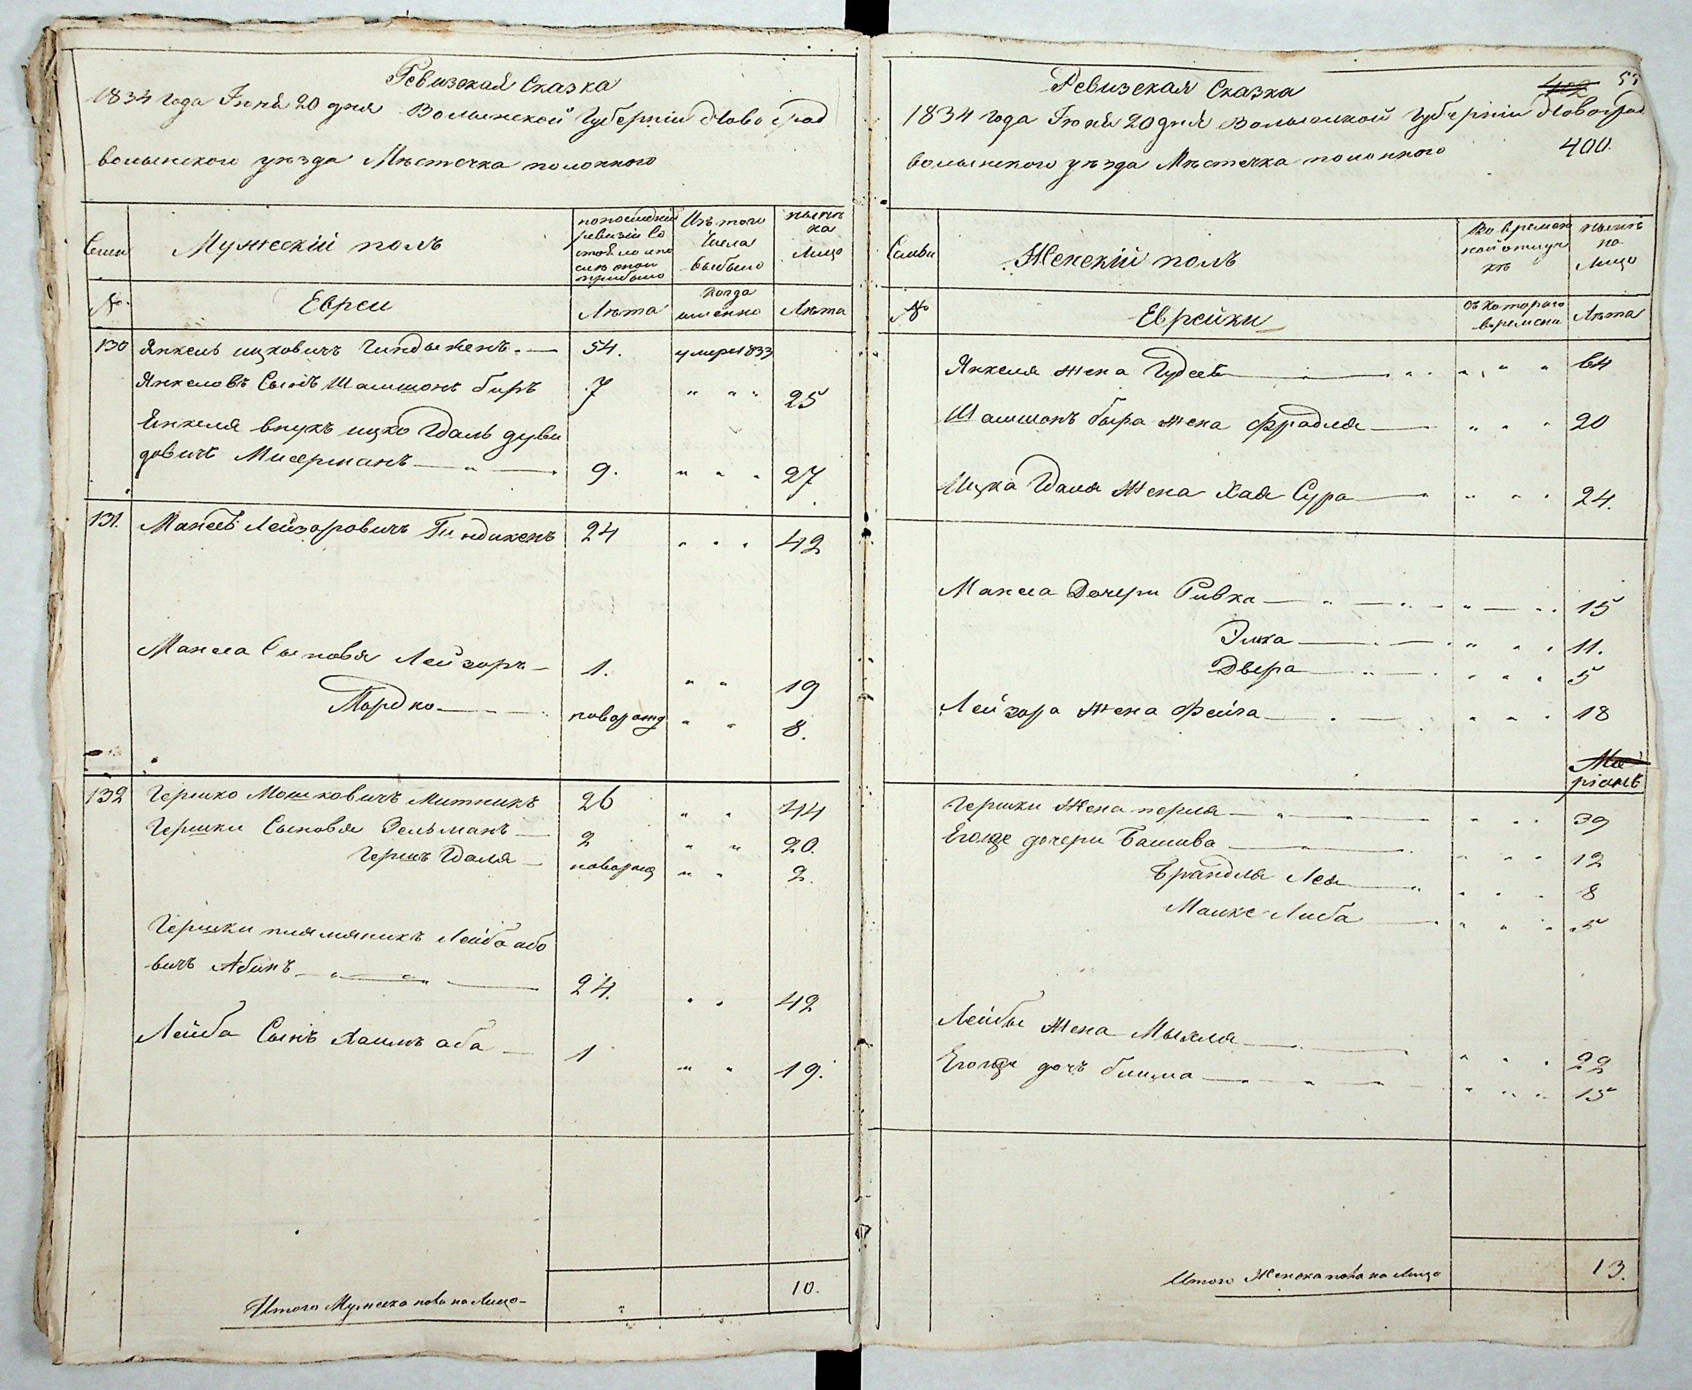 Ревизская Сказка
1834 года Июня 20 дня Волынской Губернии Новоград
волынского уезда Мѣстечка полонного
Семьи
Мужеский полъ
по последней
ревизии со
стояло и по
сле оной
прибыло
Изъ того
числа
выбыло
ныне
на
лицо
№
Евреи
Лѣта
когда
именно
Лѣта
130 Янкель ицковичъ Гиндыкенъ 54. умеръ 1833
Янкеловъ Сынъ Шалишонъ биръ 7 25
Енкеля внукъ ицко Гдаль
довичъ 9. 27
131. Манесъ Лейзоровичъ Гиндикенъ 24 42
Манеса Сыновя Лейзоръ 1. 19
Мордко новорожд 8.
132 Гершко Мошковичъ Митникъ 26 44
Гершки Сыновя Зельманъ 2 20.
Гершъ Гдаля новорожд 2.
Гершки плямяникъ Лейба або
вичъ Абинъ 24. 42
Лейба Сынъ Хаимъ аба 1 19.
Итого Мужеска пола на Лицо 10.
Ревизская Сказка
55
1834 года Июня 20 дня Волынской Губернии Новоград
400.
волынского уезда Мѣстечка полонного
Семьи
Женский полъ
Во времен
ной отлуч
кѣ
ныне
на
Лицо
№
Еврейки
съ которого
времени
Лѣта
Янкеля жена 64
Шалишонъ бира жена Фрадля 20
Ицка Гдаля Жена Хая Сура 24.
Манеса Дочери Ривка 15
Элка 11.
Двера 5
Лейзора жена Фейга 18
Гершки Жена перля 39
Егож дочери Башива 12
Брандля Лея 8
Малке Либа 5
Лейбы Жена Мыхля 22
Егож дочъ блима 15
Итого Женска пола на Лицо 13.